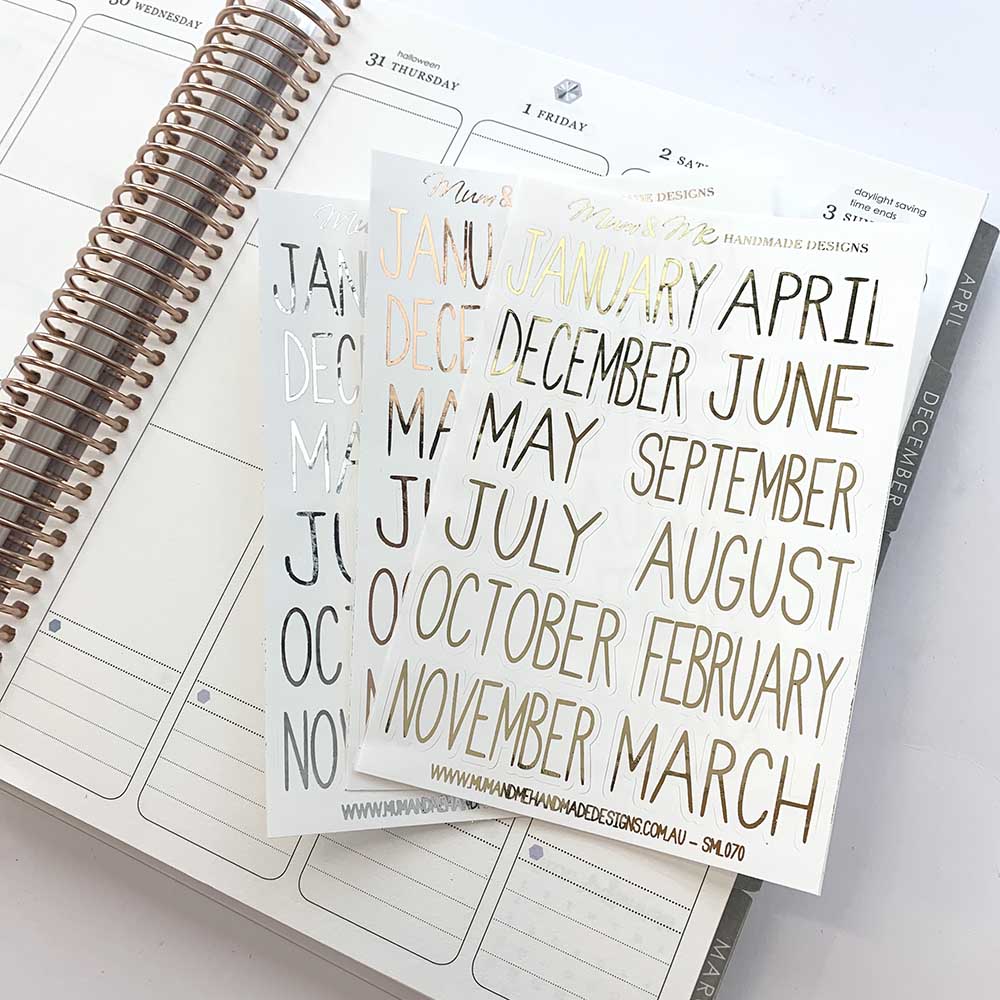 30 WEDNESDAY
halloween
31 THURSDAY
1 FRIDAY
2 SAT
daylight saving
time ends
3 SUN
APRIL
DECEMBER
MAR
Mum
JAN
DEC
MA
JU
OCT
NO
WWW.MUMANDMEHANDMA
Mum &
DESIGNS
JANU
DECE
MA
JU
O
N
Mum & Me HANDMADE DESIGNS
JANUARY APRIL
DECEMBER JUNE
MAY SEPTEMBER
JULY AUGUST
OCTOBER FEBRUARY
NOVEMBER MARCH
WWW.MUMANDMEHANDMADEDESIGNS.COM.AU - SML070